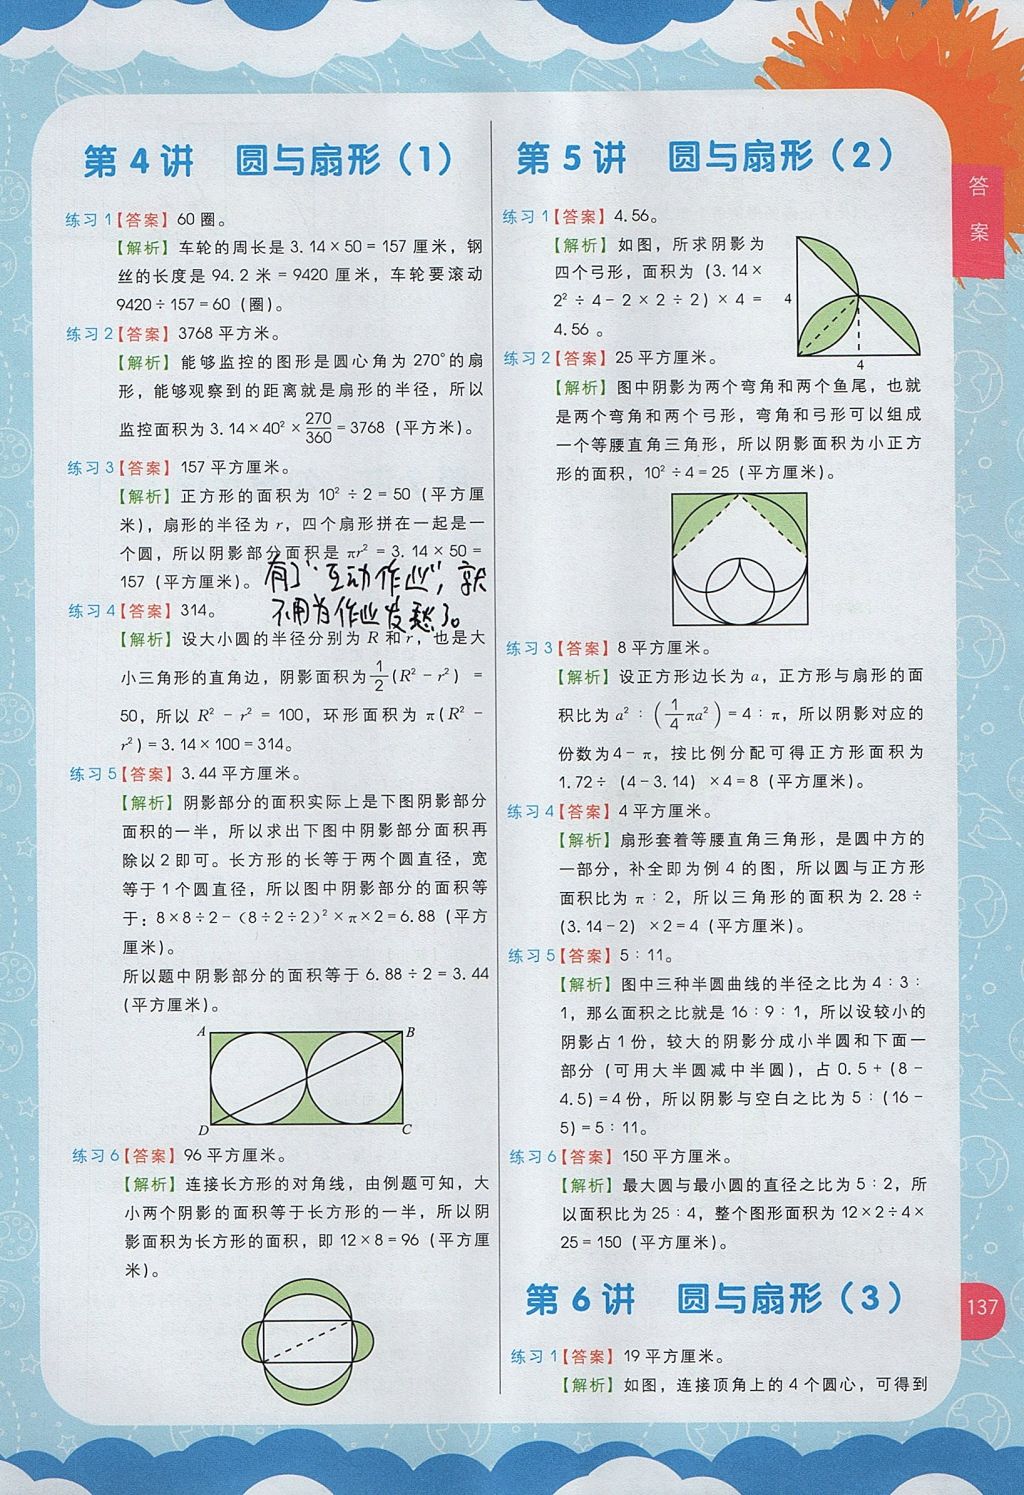 第 4 讲 圆与扇形（1）
练习1【答案】60 圈。
【解析】车轮的周长是 3.14×50=157 厘米，钢
丝的长度是 94.2 米=9420 厘米，车轮要滚动
9420÷157=60（圈）。
练习2【答案】3768 平方米。
【解析】能够监控的图形是圆心角为 270°的扇
形，能够观察到的距离就是扇形的半径，所以
监控面积为 3.14×40²×270/360=3768（平方米）。
练习3【答案】157 平方厘米。
【解析】正方形的面积为 10²÷2=50（平方厘
米），扇形的半径为 r，四个扇形拼在一起是一
个圆，所以阴影部分面积是 πr²=3.14×50=
157（平方厘米）。
有了“互动作业”，就
不用为作业发愁了。
练习4【答案】314。
【解析】设大小圆的半径分别为 R 和 r，也是大
小三角形的直角边，阴影面积为1/2(R²-r²) =
50，所以 R²-r²=100，环形面积为 π(R²-
r²)=3.14×100=314。
练习5【答案】3.44 平方厘米。
【解析】阴影部分的面积实际上是下图阴影部分
面积的一半，所以求出下图中阴影部分面积再
除以2即可。长方形的长等于两个圆直径，宽
等于1个圆直径，所以图中阴影部分的面积等
于：8×8÷2-(8÷2÷2)²×π×2=6.88（平方
厘米）。
所以题中阴影部分的面积等于 6.88÷2=3.44
（平方厘米）。
A B
D C
练习6【答案】96 平方厘米。
【解析】连接长方形的对角线，由例题可知，大
小两个阴影的面积等于长方形的一半，所以阴
影面积为长方形的面积，即 12×8=96（平方厘
米）。
第 5 讲 圆与扇形（2）
练习1【答案】4.56。
【解析】如图，所求阴影为
四个弓形，面积为（3.14×
2²÷4-2×2÷2）×4=
4.56 。
4
4
练习2【答案】25 平方厘米。
【解析】图中阴影为两个弯角和两个鱼尾，也就
是两个弯角和两个弓形，弯角和弓形可以组成
一个等腰直角三角形，所以阴影面积为小正方
形的面积，10²÷4=25（平方厘米）。
练习3【答案】8 平方厘米。
【解析】设正方形边长为 a，正方形与扇形的面
积比为 a²∶(1/4πa²)=4∶π，所以阴影对应的
份数为4-π，按比例分配可得正方形面积为
1.72÷（4-3.14）×4=8（平方厘米）。
练习4【答案】4 平方厘米。
【解析】扇形套着等腰直角三角形，是圆中方的
一部分，补全即为例 4 的图，所以圆与正方形
面积比为 π∶2，所以三角形的面积为 2.28÷
(3.14-2) ×2=4（平方厘米）。
练习5【答案】5∶11。
【解析】图中三种半圆曲线的半径之比为 4∶3∶
1，那么面积之比就是 16∶9∶1，所以设较小的
阴影占1份，较大的阴影分成小半圆和下面一
部分（可用大半圆减中半圆），占 0.5+(8-
4.5)=4份，所以阴影与空白之比为 5∶(16-
5)=5∶11。
练习6【答案】150 平方厘米。
【解析】最大圆与最小圆的直径之比为 5∶2，所
以面积比为 25∶4，整个图形面积为 12×2÷4×
25=150（平方厘米）。
第 6 讲 圆与扇形（3）
练习1【答案】19 平方厘米。
【解析】如图，连接顶角上的 4 个圆心，可得到
答
案
137